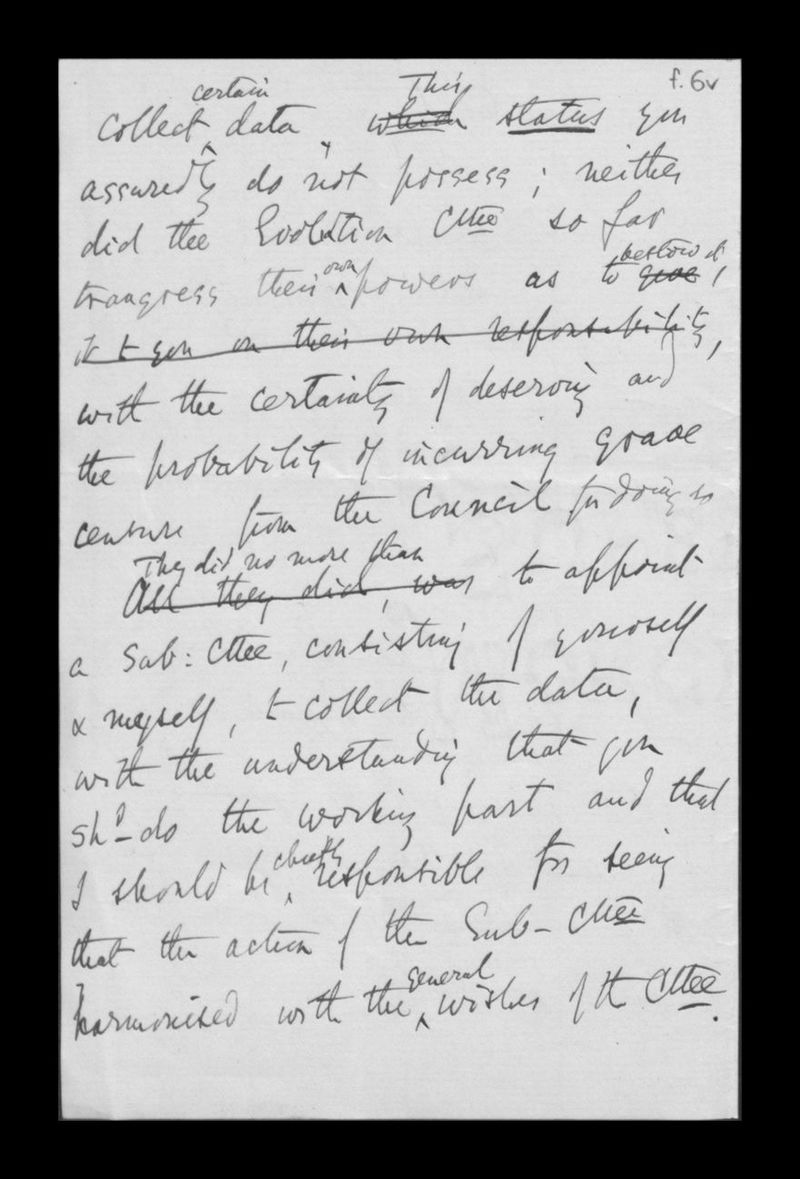 f. 6v
certain This
collect data, which status you
assuredly do not possess; neither
did the Evolution Cttee so far
trangress their own powers as to give bestow it,
it to you on their own responsibility,
with the certainty of deserving and
the probability of incurring grave
censure from the Council for doing so
They did no more than
All they did, was to appoint
a Sub: Cttee, consisting of yourself
& myself, to collect the data,
with the understanding that you
shd do the working part and that
I should be chiefly responsible for seeing
that the action of the Sub-Cttee
harmonised with the general wishes of the Cttee.